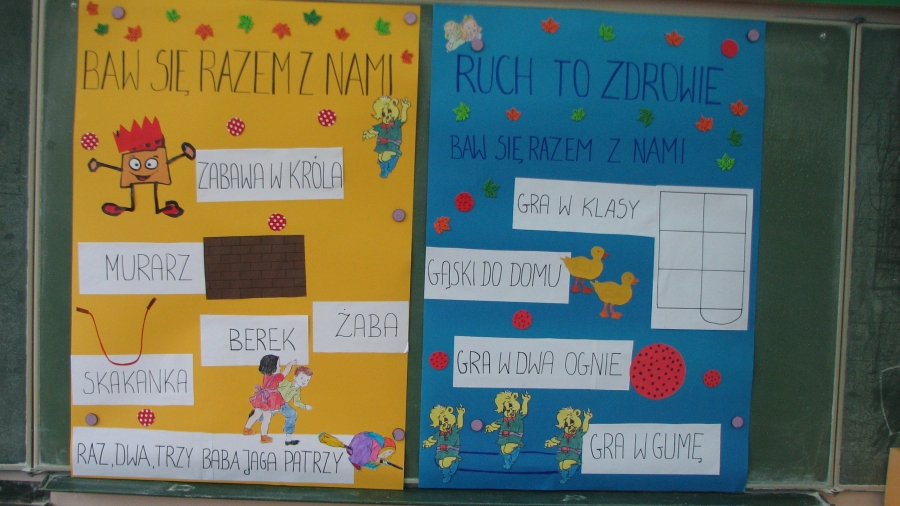 BAW SIĘ RAZEM Z NAMI
ZABAWA W KRÓLA
MURARZ
BEREK
ŻABA
SKAKANKA
RAZ, DWA, TRZY BABA JAGA PATRZY
RUCH TO ZDROWIE
BAW SIĘ RAZEM Z NAMI
GRA W KLASY
GĄSKI DO DOMU
GRA W DWA OGNIE
GRA W GUMĘ